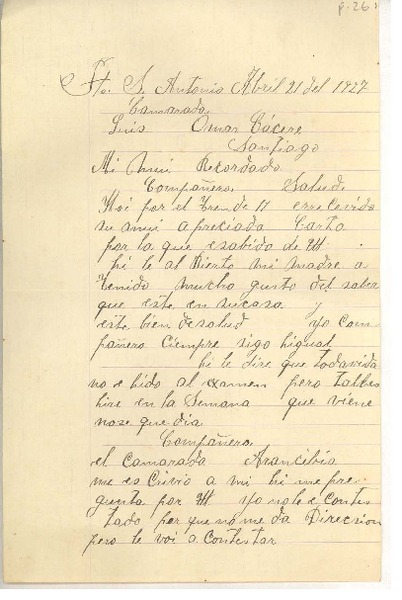 p. 26
Pto. S. Antonio Abril 21 del 1927
Camarada
Luis Omar Cácere
Santiago
Mi Mui Recordado
Compañero Salud
Hoi por el tren de 11 errecevido
su mui apreciada Carta
por la que esabido de Ud
hi le al Dierto mi madre a
tenido mucho gusto del saber
que este en sucasa y
este bien desalud yo com
pañero Ciempre sigo higual
hi le dire que todavida
no e hido al examen pero talbes
hire en la Semana que viene
nose que dia
Compañero
el camarada Arancibia
me esCrivio a mi hi me pre-
gunta por Ud yo nole e contes
tado por que no me da Direccion
pero le voi a Contestar